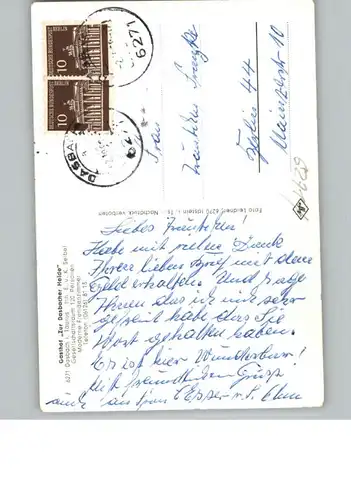 Gasthof „Zur Dasbacher Heide"
6271 Dasbach i. Taunus · Inh. E. u. K. Seibel
Gesellschaftsraum 120 Personen
Moderne Fremdenzimmer
Foto Leichner, 6270 Idstein i. Ts.
Nachdruck verboten
DEUTSCHE BUNDESPOST BERLIN
10
DEUTSCHE BUNDESPOST BERLIN
10
6271
DASBA
Frau
Fräulein
Berlin 44
10
Liebes Fräulein!
Habe mit vielen Dank
Ihren lieben Brief mit dem
Geld erhalten. Und
Ihnen das ich mich sehr
gefreut habe das Sie
Wort gehalten haben.
Es ist hier Wunderbar!
Mit freundlichen Gruß
auch an